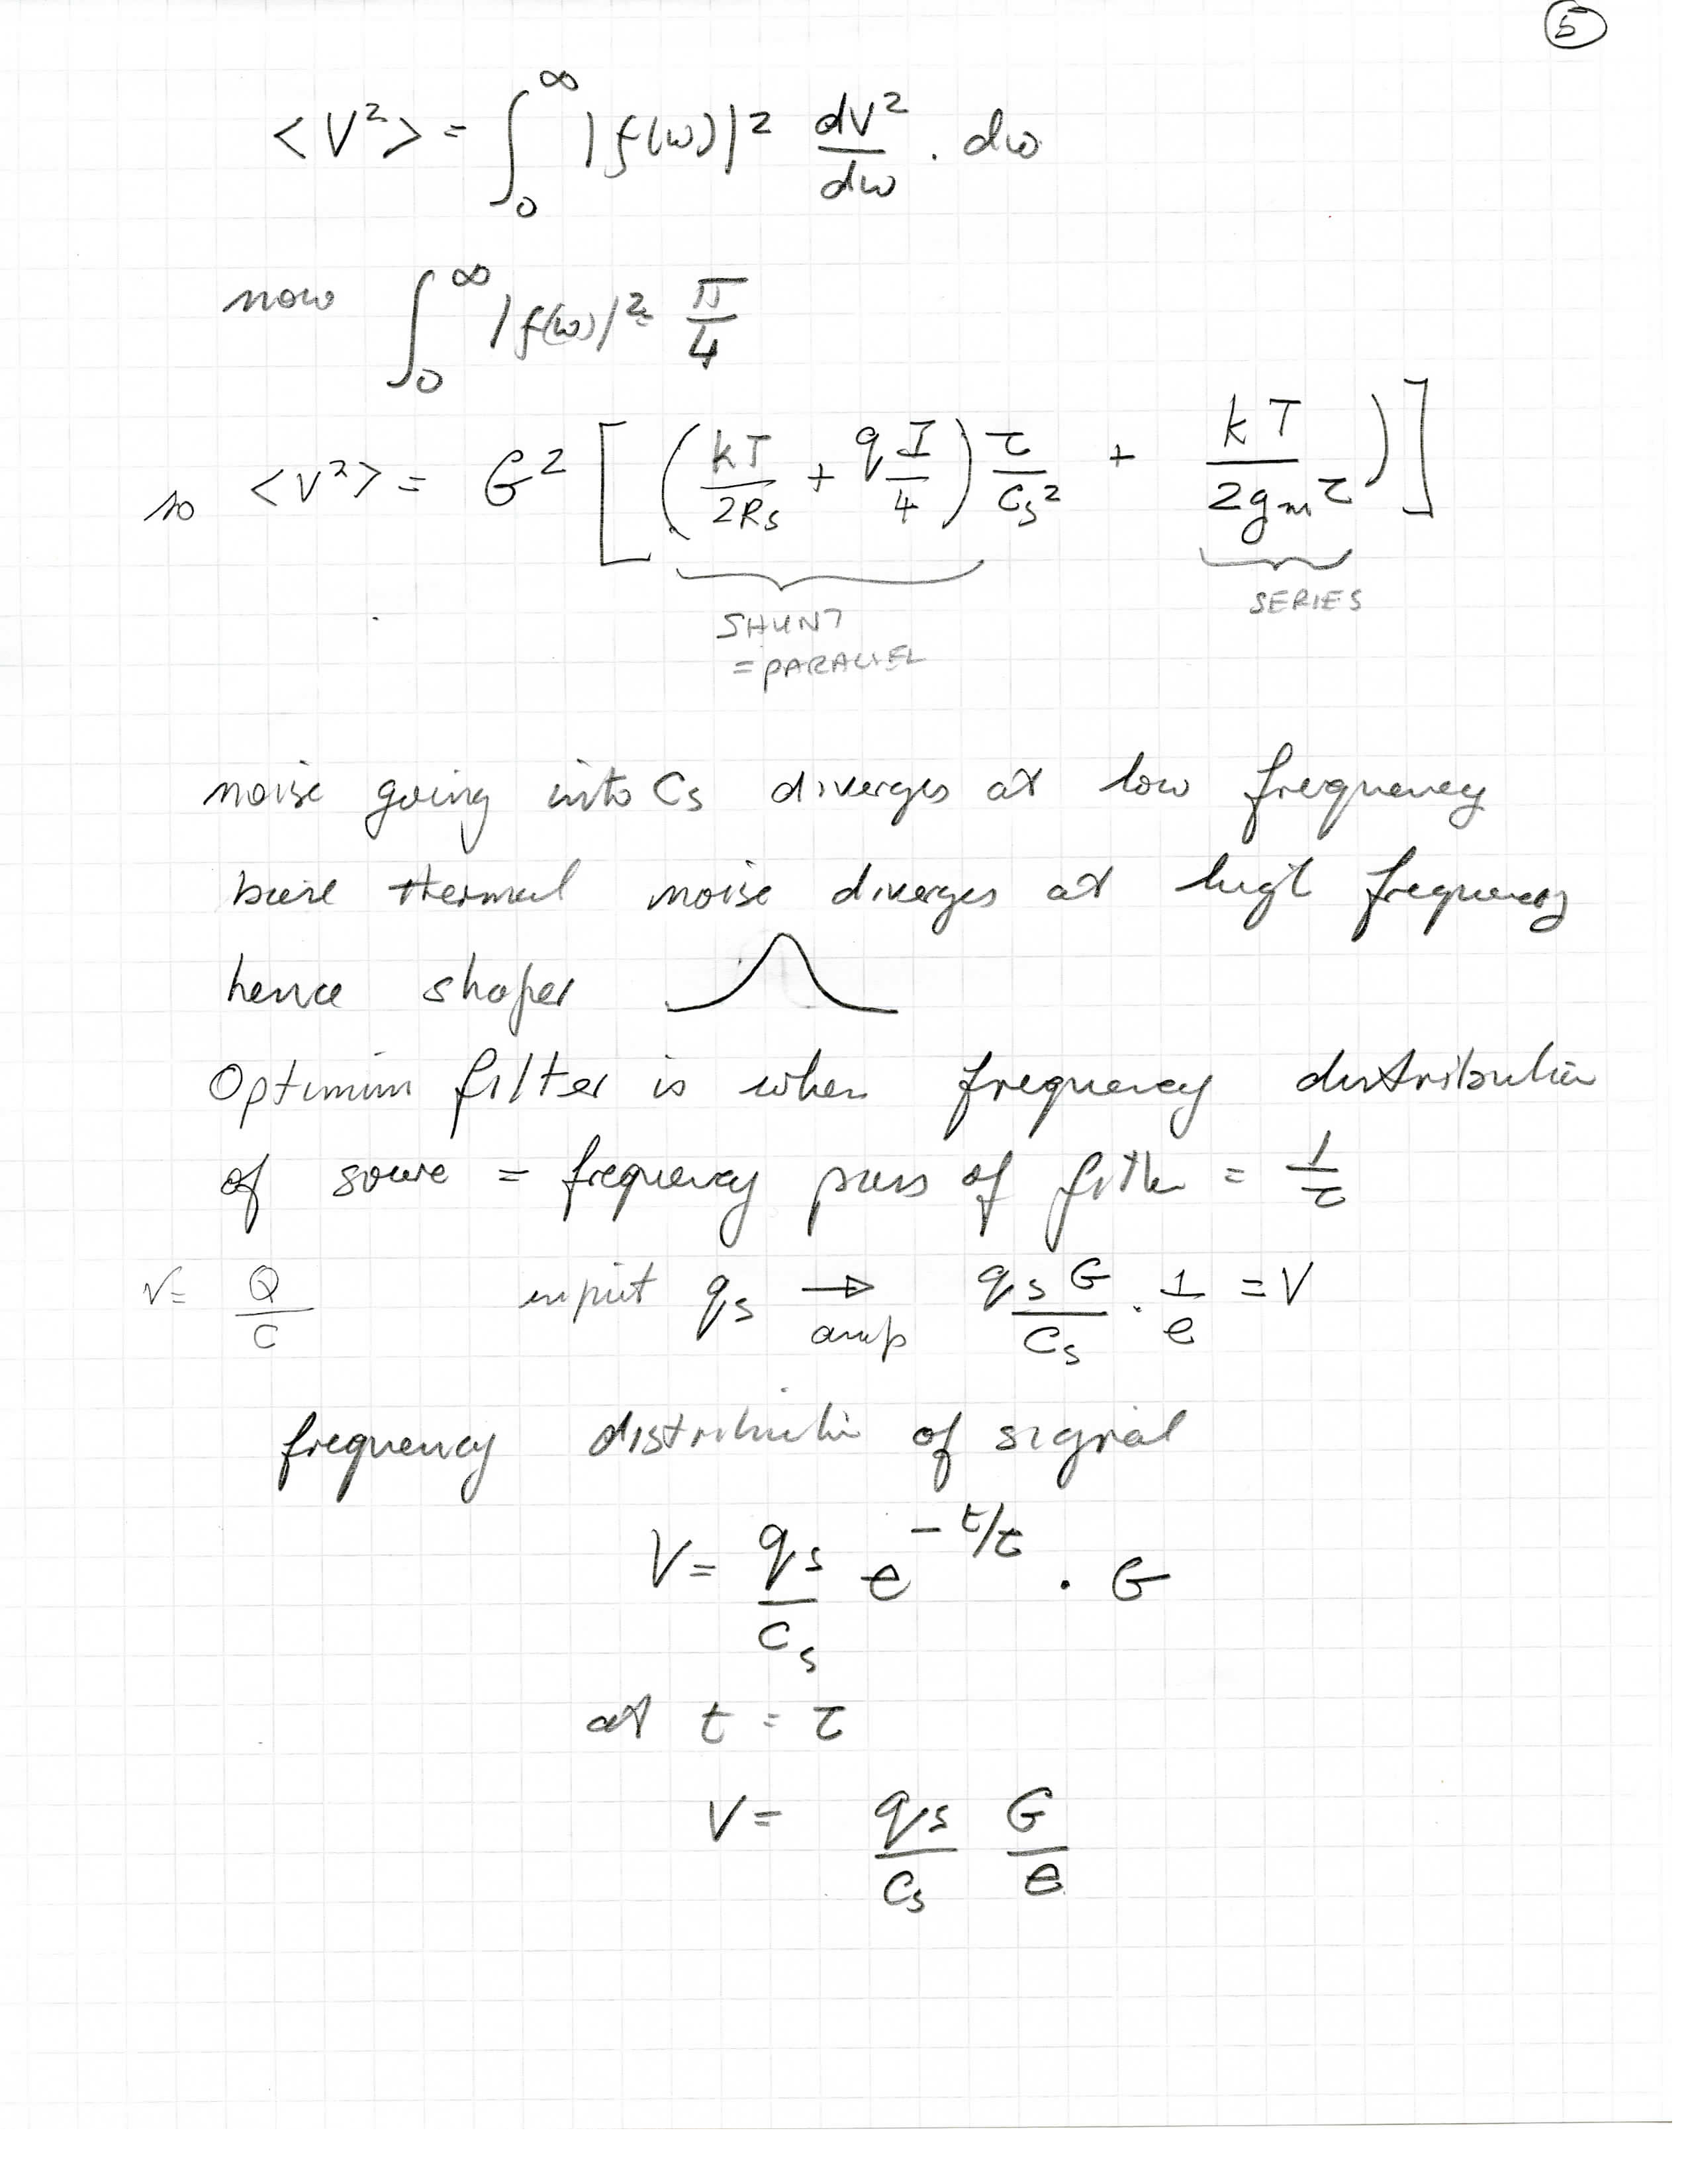 5
<V²> = ∫₀^∞ |f(ω)|² dV²/dω . dω
now ∫₀^∞ |f(ω)|² = π/4
so <V²> = G² [ ( kT/2Rs + qI/4 ) τ/Cs² + kT/2gmτ ) ]
SHUNT
= PARALLEL
SERIES
noise going into Cs diverges at low frequency
thermal noise diverges at high frequency
hence shaper
Optimum filter is when frequency distribution
of source = frequency pass of filter = 1/τ
V = Q/C input qs → amp qs G/Cs . 1/e = V
frequency distribution of signal
V = qs/Cs e^(-t/τ) . G
at t = τ
V = qs/Cs G/e